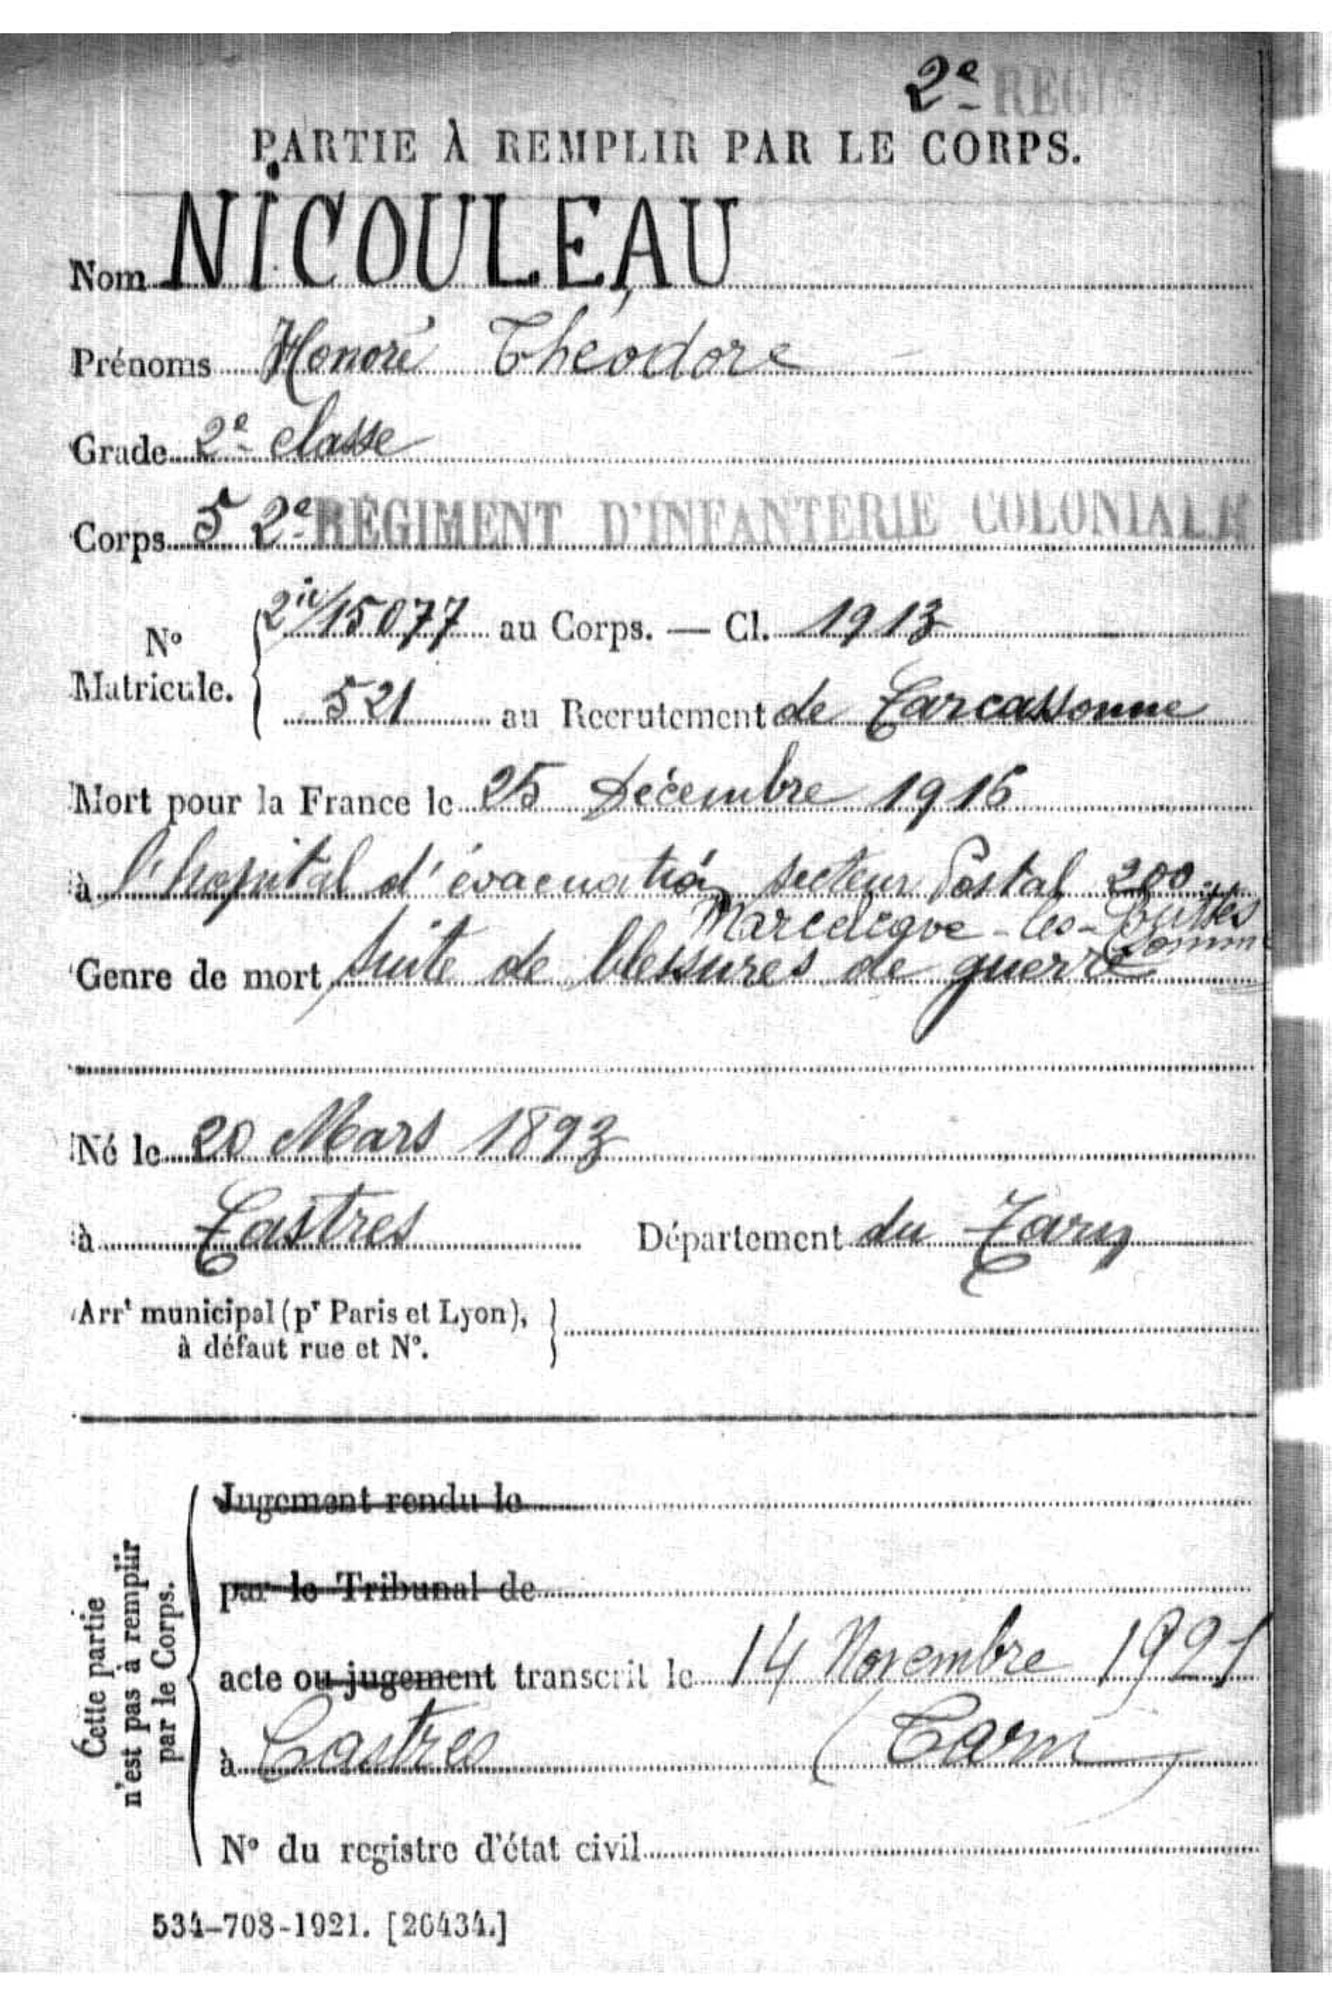 2e REGIM
PARTIE À REMPLIR PAR LE CORPS.
Nom NICOULEAU
Prénoms Honoré Théodore
Grade 2e classe
Corps 52e REGIMENT D'INFANTERIE COLONIALE
No Matricule. 15077 au Corps. — Cl. 1913
521 au Recrutement de Carcassonne
Mort pour la France le 25 Décembre 1916
à l'hopital d'évacuation secteur Postal 200
Marcelcave - les - Buttes
Somme
Genre de mort suite de blessures de guerre
Né le 20 Mars 1893
à Castres Département du Tarn
Arrt municipal (pr Paris et Lyon),
à défaut rue et No.
Cette partie
n'est pas à remplir
par le Corps.
Jugement rendu le
par le Tribunal de
acte ou jugement transcrit le 14 Novembre 1921
à Castres (Tarn)
No du registre d'état civil
534-708-1921. [26434.]